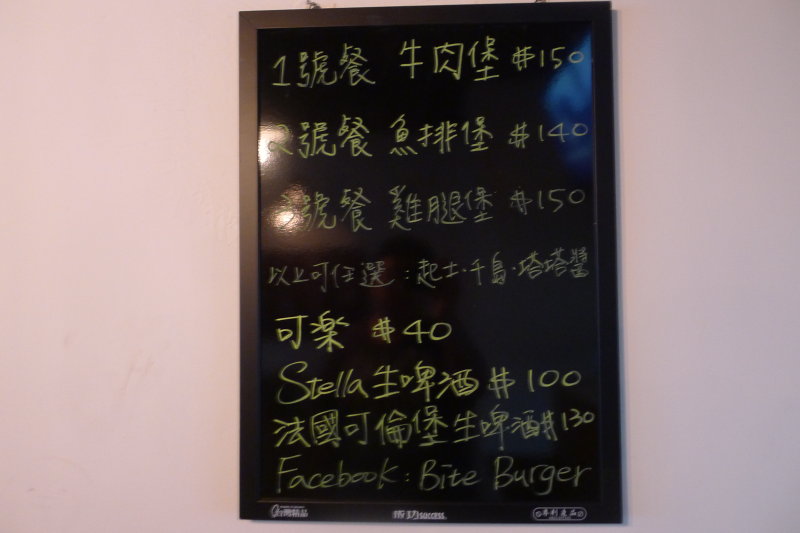 1號餐 牛肉堡 #150
2號餐 魚排堡 #140
3號餐 雞腿堡 #150
以上可任選：起士·千島·塔塔醬
可楽 #40
Stella生啤酒 #100
法國可倫堡生啤酒#130
Facebook: Bite Burger
台灣精品 成功success. 專利產品